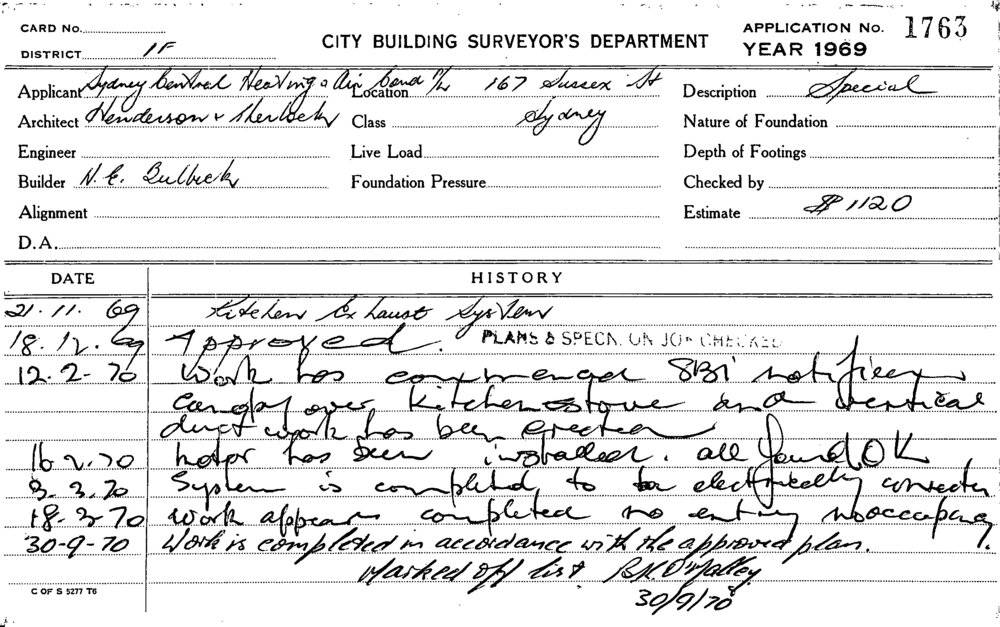 CARD No.
DISTRICT 1F
CITY BUILDING SURVEYOR'S DEPARTMENT
APPLICATION No. 1763
YEAR 1969
Applicant Sydney Central Heating & Air Cond P/L
Location 167 Sussex St
Description Special
Architect Henderson & Sherlock
Class Sydney
Nature of Foundation
Engineer
Live Load
Depth of Footings
Builder N.E. Bulbeck
Foundation Pressure
Checked by
Alignment
Estimate $1120
D.A.
DATE HISTORY
21.11.69 Kitchen Exhaust System
18.12.69 Approved. PLANS & SPECN. ON JOB CHECKED
12-2-70 Work has commenced SBI notified
Canopy over kitchen stove and vertical
duct work has been erected
16.2.70 Motor has been installed. all found OK
3.3.70 System is completed to be electrically connected
18-3-70 work appears completed no entry no occupancy
30-9-70 Work is completed in accordance with the approved plan.
Marked off list B.K. O'Malley
30/9/70
C OF S 5277 T6